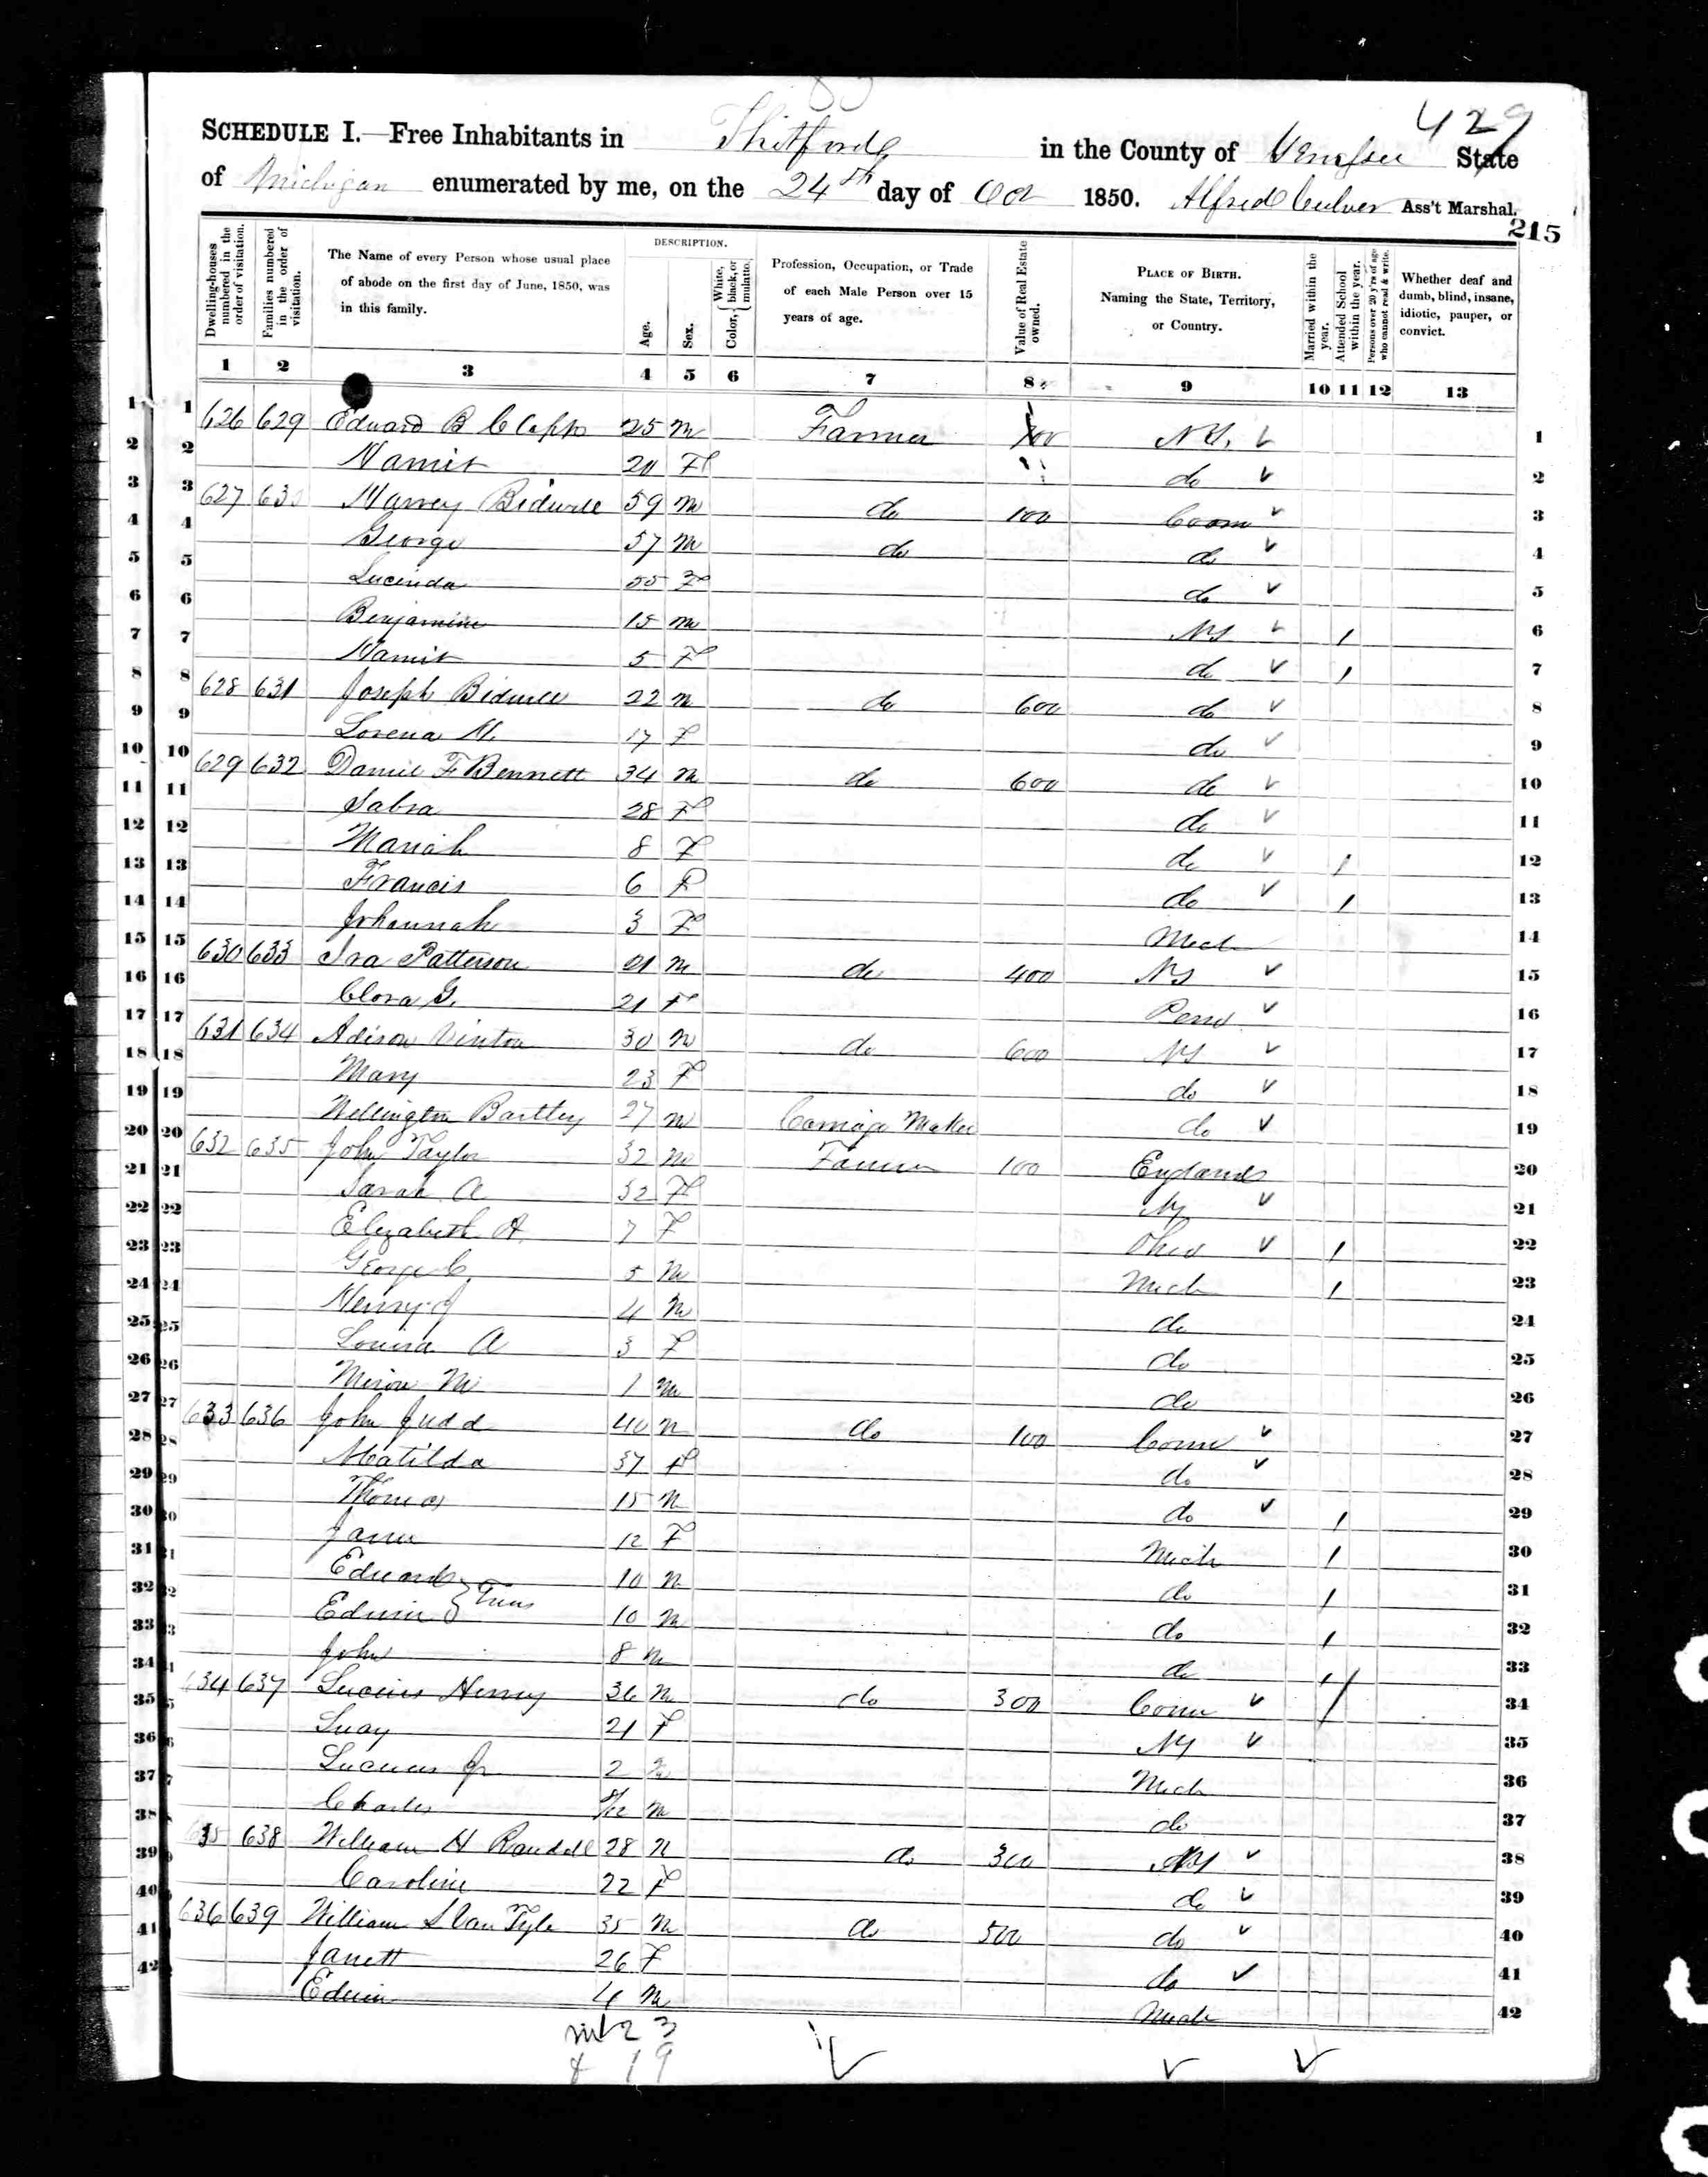 429
SCHEDULE I.—Free Inhabitants in Thetford in the County of Genesee State
of Michigan enumerated by me, on the 24th day of Oct 1850. Alfred Culver Ass't Marshal.
215
Dwelling-houses numbered in the order of visitation.
Families numbered in the order of visitation.
The Name of every Person whose usual place of abode on the first day of June, 1850, was in this family.
DESCRIPTION.
Age.
Sex.
Color, { White, black, or mulatto.
Profession, Occupation, or Trade of each Male Person over 15 years of age.
Value of Real Estate owned.
PLACE OF BIRTH. Naming the State, Territory, or Country.
Married within the year.
Attended School within the year.
Persons over 20 y'rs of age who cannot read & write.
Whether deaf and dumb, blind, insane, idiotic, pauper, or convict.
1 2 3 4 5 6 7 8 9 10 11 12 13
1 626 629 Edward B Clapp 25 M Farmer NY. 1
2 20 F do 2
3 627 630 Harvey Bidwell 59 M do 100 Conn 3
4 George 57 M do do 4
5 Lucinda 55 F do 5
6 Benjamine 15 M NY 1 6
7 5 F do 1 7
8 628 631 Joseph Bidwell 22 M do 600 do 8
9 Lorena M. 17 F do 9
10 629 632 Daniel F Bennett 34 M do 600 do 10
11 Sabra 28 F do 11
12 Mariah 8 F do 1 12
13 Francis 6 F do 1 13
14 Johannah 3 F Mich 14
15 630 633 Ira Patterson 21 M do 400 NY 15
16 Clora G. 21 F Penn 16
17 631 634 Adison Vinton 30 M do 600 NY 17
18 Mary 23 F do 18
19 Wellington Bartley 27 M Carriage Maker do 19
20 632 635 John Taylor 32 M Farmer 100 England 20
21 Sarah A 32 F NY 21
22 Elizabeth A. 7 F Ohio 1 22
23 George C. 5 M Mich 1 23
24 Henry J 4 M do 24
25 Louisa A 3 F do 25
26 Miron M 1 M do 26
27 633 636 John Judd 40 M do 100 Conn 27
28 Matilda 37 F do 28
29 Thomas 15 M do 1 29
30 Jane 12 F Mich 1 30
31 Edward } Twins 10 M do 1 31
32 Edwin 10 M do 1 32
33 John 8 M do 1 33
34 634 637 Lucius Henry 36 M do 300 Conn 1 34
35 21 F NY 35
36 Lucius Jr 2 M Mich 36
37 Charles M do 37
38 635 638 William H Randell 28 M do 300 NY 38
39 Caroline 22 F do 39
40 636 639 William S Van Tyle 35 M do 500 do 40
41 Janett 26 F do 41
42 Edwin 4 M Mich 42
m 23
f 19